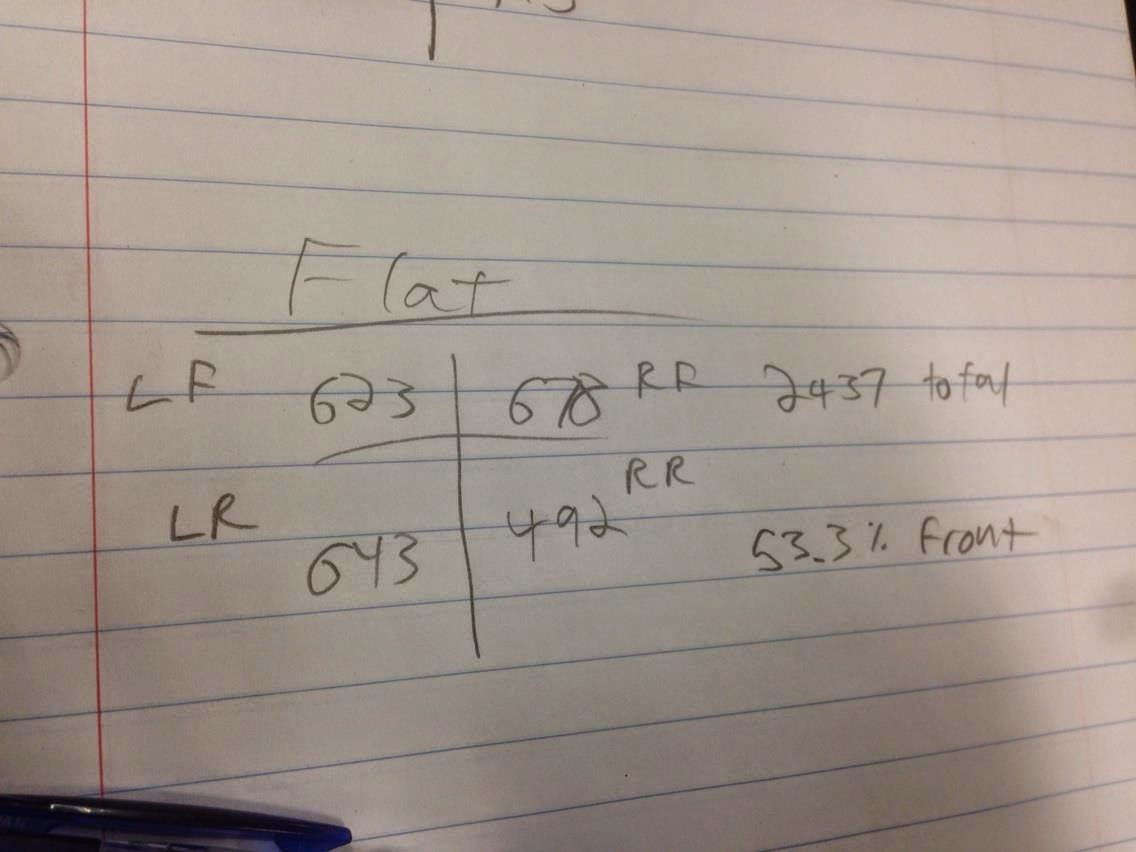 Flat
LF 623 678 RF 2437 total
RR
LR 643 492 53.3% Front